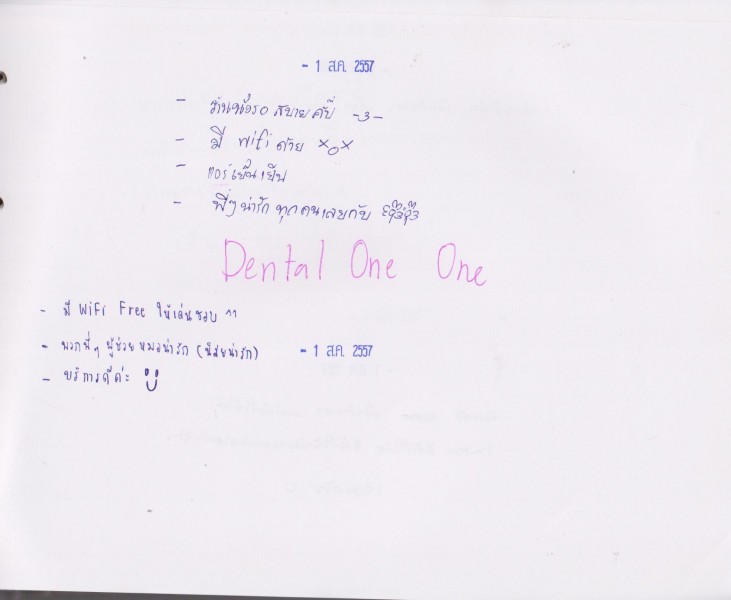 - 1 ส.ค. 2557
- ที่นั่งรอ สบายคับ -3-
- มี wifi ด้วย ×o×
- แอร์เย็นเย็น
- พี่ๆน่ารัก ทุกคนเลยกับ
Dental One One
- มี WiFi Free ให้เล่นชอบ ^^
- พวกพี่ๆ ผู้ช่วยหมอน่ารัก (นิสัยน่ารัก)
- 1 ส.ค. 2557
- บริการดีค่ะ